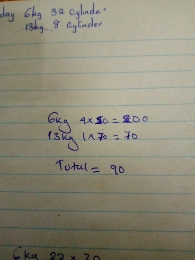 day 6kg 32 Cylinder
13kg 8 Cylinder
6kg 4x50 = 200
13kg 1x70 = 70
Total = 90
6kg 22 x 30